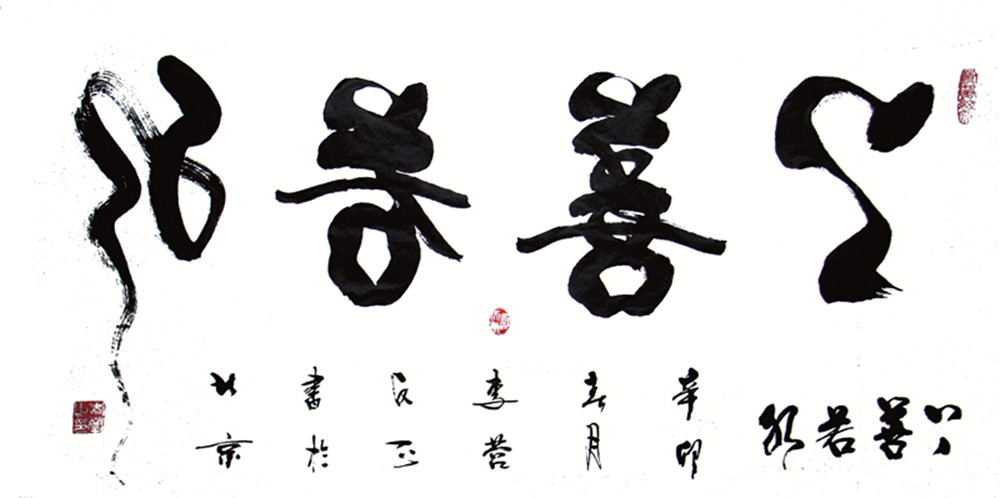 上善若水
上善若水
辛卯
春月
李
書於
北京